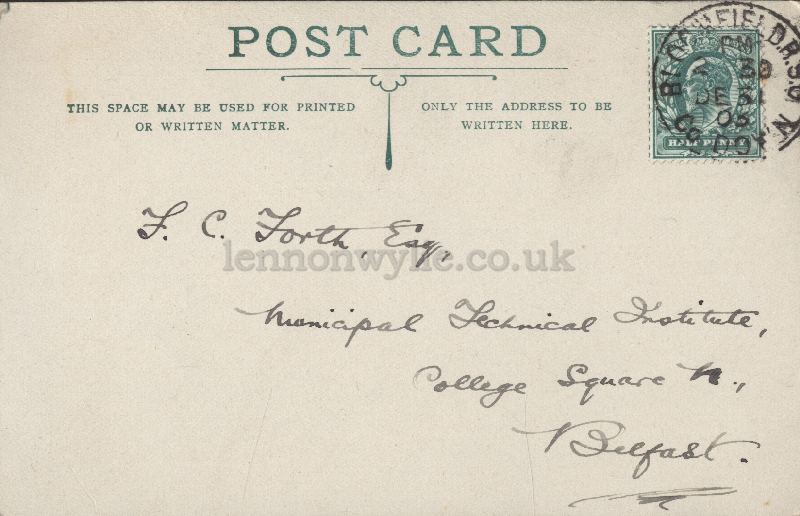 POST CARD
THIS SPACE MAY BE USED FOR PRINTED
OR WRITTEN MATTER.
ONLY THE ADDRESS TO BE
WRITTEN HERE.
BLOOMFIELD
PM
30
DE 31
05
HALFPENNY
F. C. Forth, Esq,
lennonwylie.co.uk
Municipal Technical Institute,
College Square N.,
Belfast.